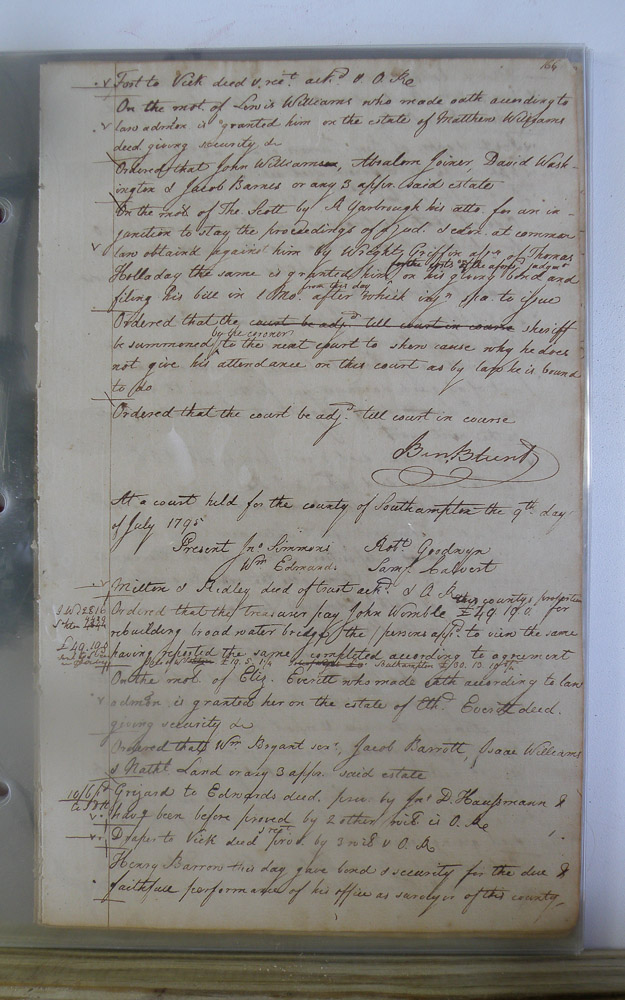 166
Fort to Vick deed & rect. ackd & O. Re
On the mot. of Lewis Williams who made oath according to
law admōn is granted him on the estate of Matthew Williams
decd. giving security &c
Ordered that John Williamson, Absalom Joiner, David Wash-
ington & Jacob Barnes or any 3 appr. said estate
On the mot. of Tho Scott by A Yarbrough his atto. for an in-
junction to stay the proceedings of a jud. & exōn. at common
law obtaind against him by Wright Griffin assn. of Thomas
for the costs of the afores. Judgmt
Holladay the same is granted him on his giving bond and
from this day
filing his bill in 1 Mo. after which injn. spa. to issue
Ordered that the court be adjd. till court in course sheriff
by the coroner
be summoned to the next court to shew cause why he does
not give his attendance on this court as by law he is bound
to do
Ordered that the court be adjd. till court in course
Ben. Blunt
At a court held for the county of Southampton the 9th day
of July 1795
Present Jno Simmons Robt. Goodwyn
Wm Edmunds Saml. Calvert
Milton & Ridley deed of trust ackd. & O. Re
this countys proportion
Ordered that the treasurer pay John Womble £49.19.0 for
rebuilding broad water bridge, the persons appd. to view the same
having reported the same completed according to agreement
£19.5.1¼ Southampton £30.13.10¾
£49.19.0
On the mot. of Eliz. Everett who made oath according to law
admōn is granted her on the estate of Everett decd.
giving security &c
Ordered that Wm Bryant senr., Jacob Barrott, Isaac Williams
& Nathl. Land or any 3 appr. said estate
10/6 pd
Grizard to Edwards deed prov. by Jno D. Haussmann &
havg. been before proved by 2 other wits. is O. Re
& rect.
Draper to Vick deed prov. by 3 wits & O. Re
Henry Barrow this day gave bond & security for the due &
faithfull performance of his office as surveyor of this county